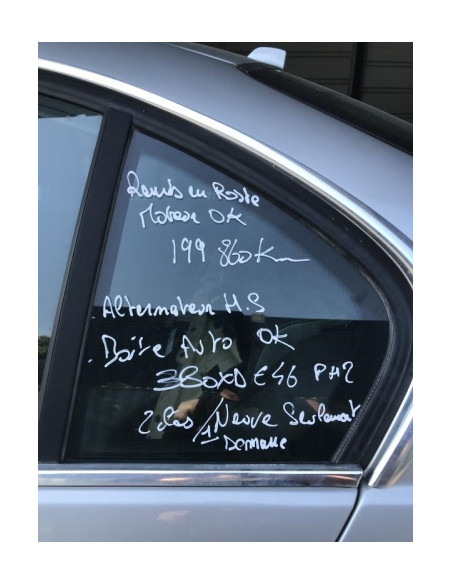 Remis en Route
Moteur OK
199 860 Km
. Alternateur H.S
. Boite Auto OK
E46 PH2
2 Clés / 1 Neuve Seulement
Demarre